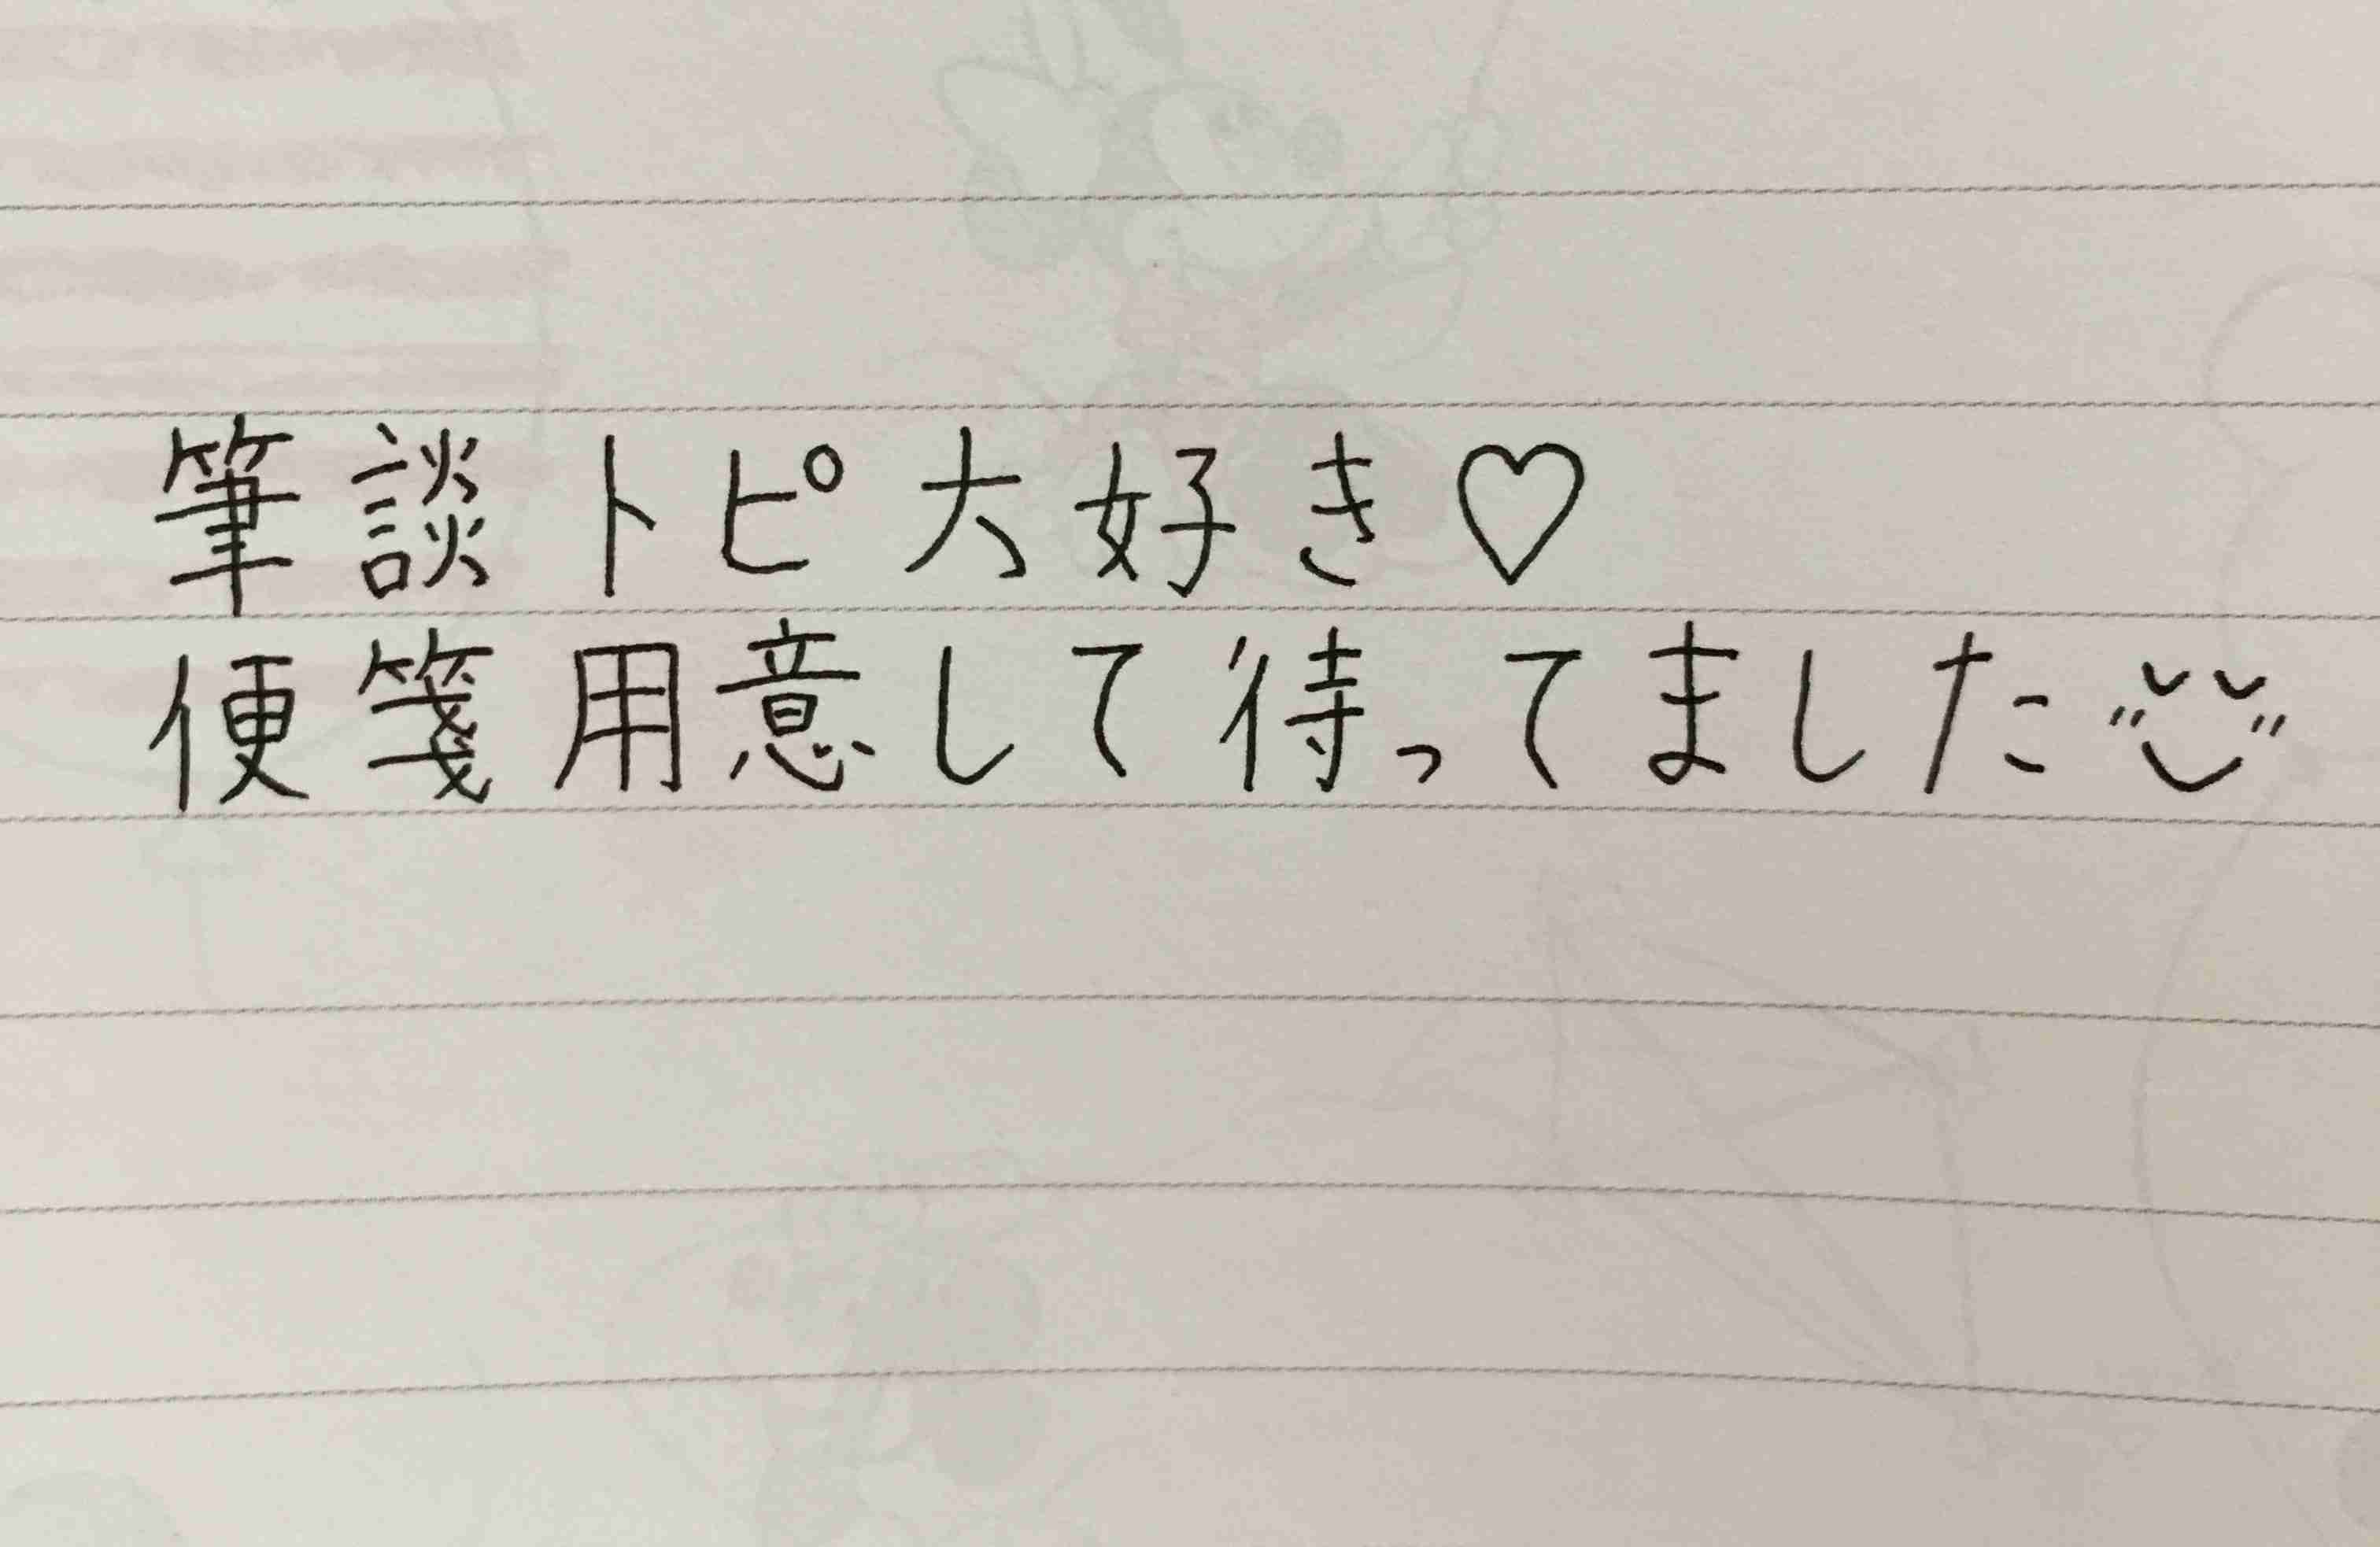 筆談トピ大好き♡
便箋用意して待ってました